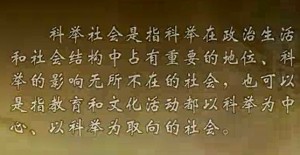 科举社会是指科举在政治生活
和社会结构中占有重要的地位、科
举的影响无所不在的社会，也可以
是指教育和文化活动都以科举为中
心、以科举为取向的社会。